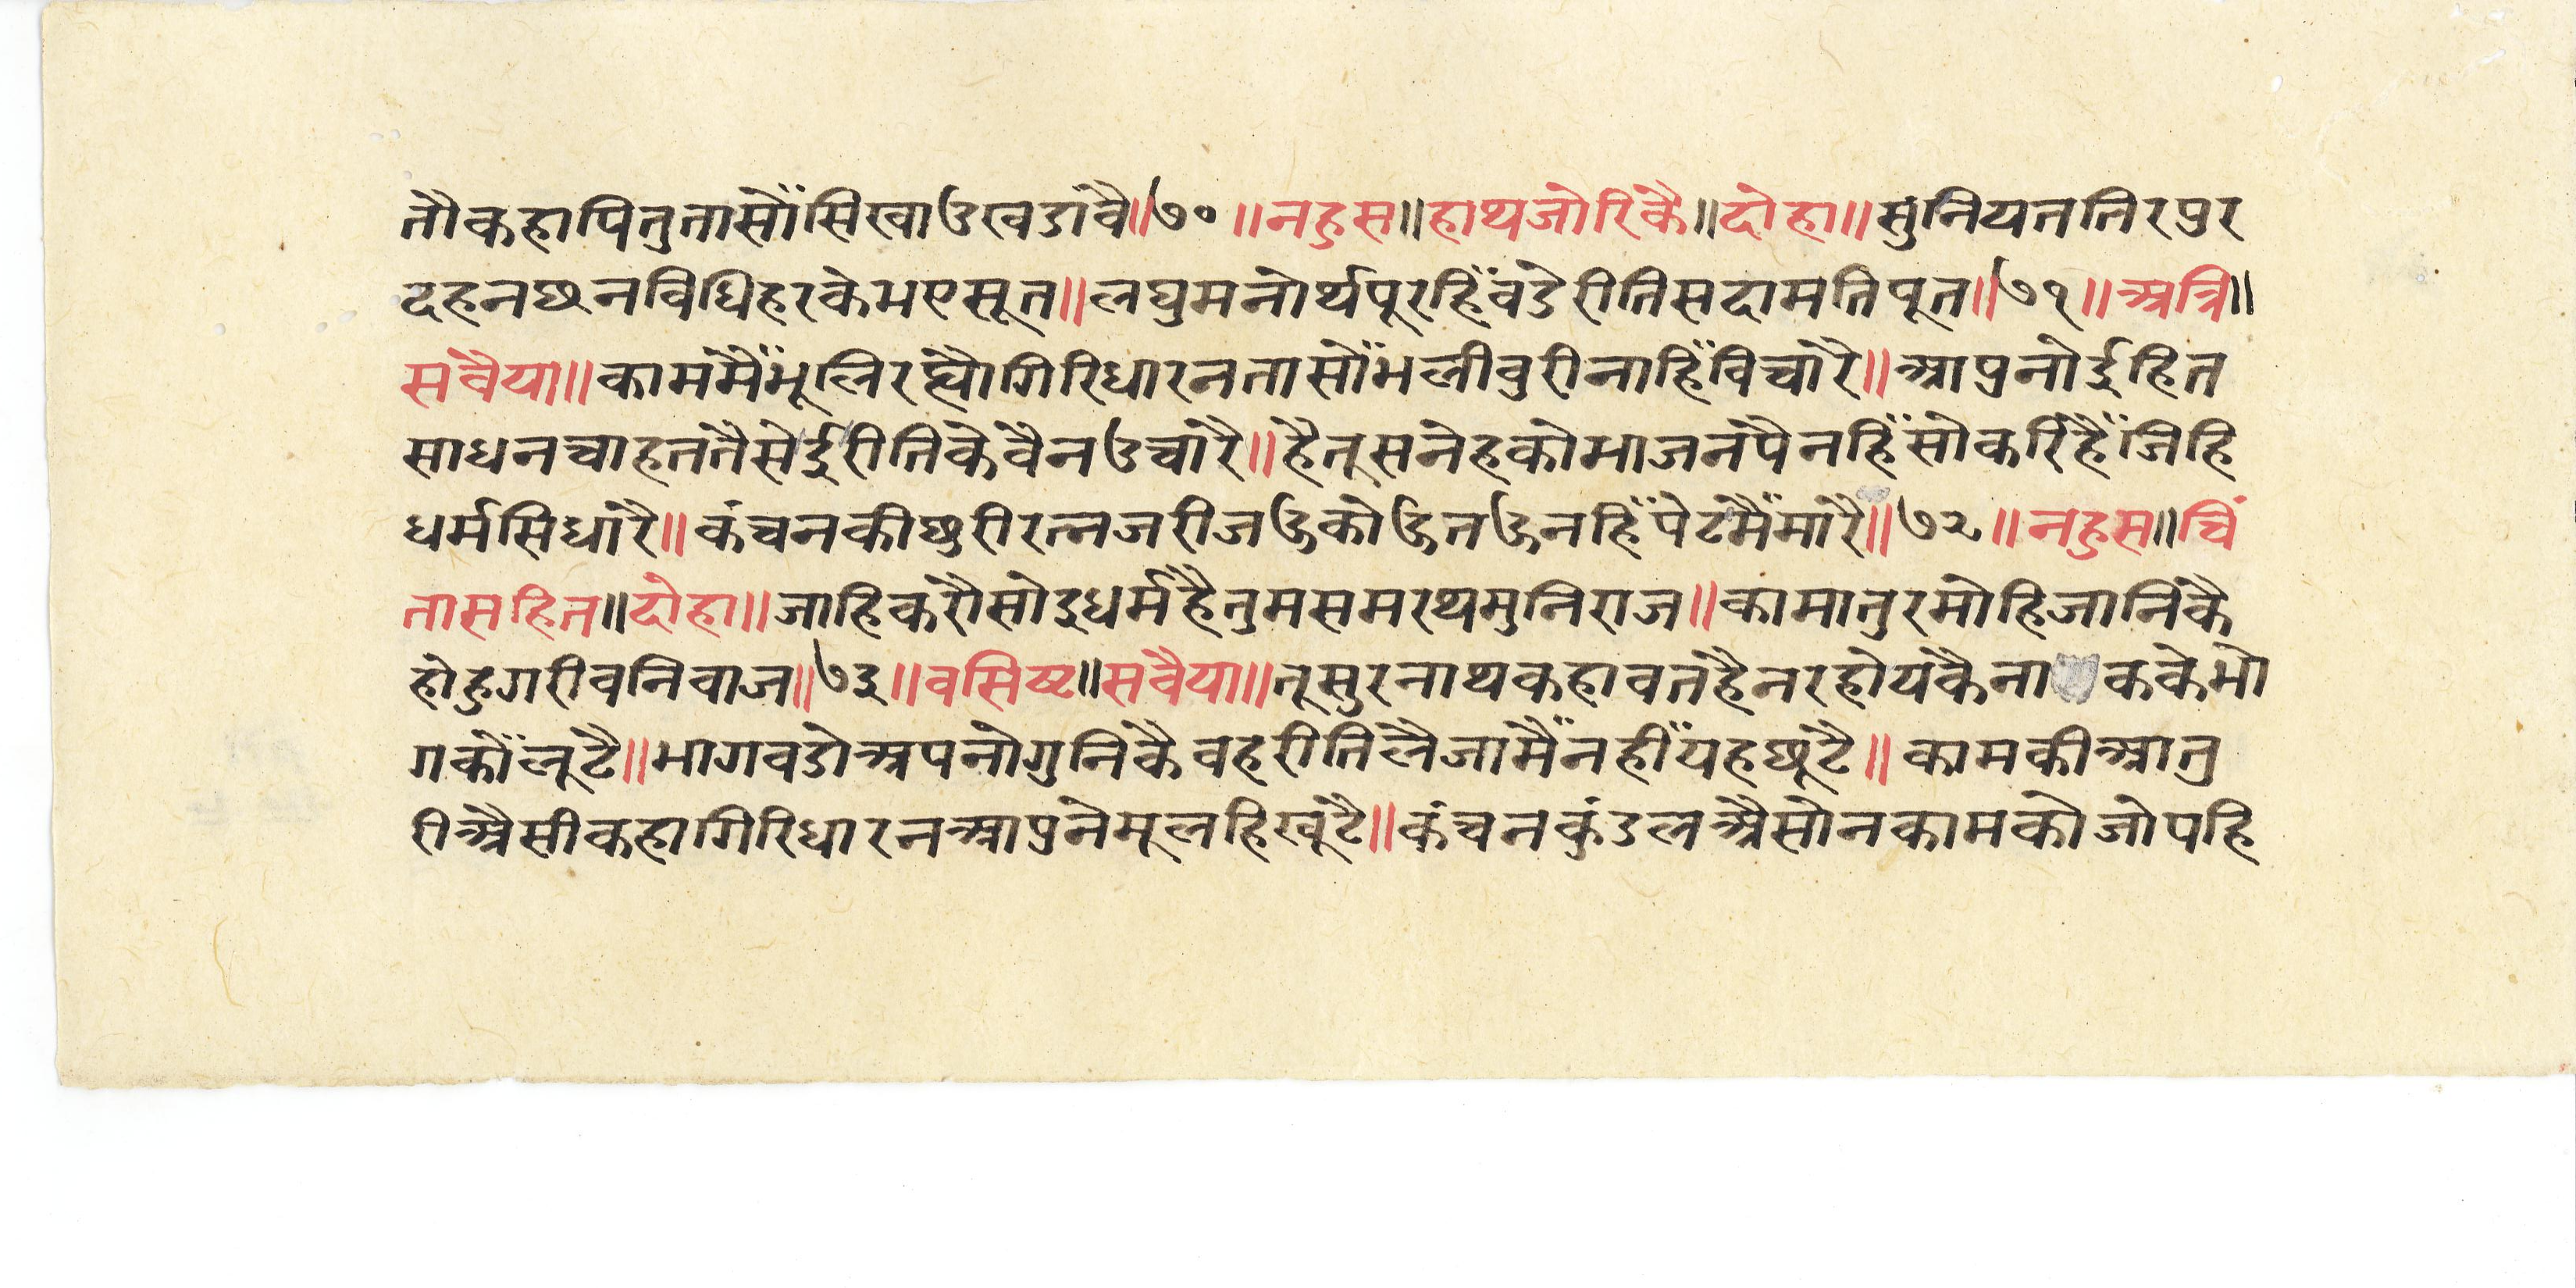 तौकहापितुतासौंसिखाउखडावै॥७०॥नहुस॥हाथजोरिकै॥दोहा॥सुनियततिरपुर
दहनछनविधिहरकेभएसूत॥लघुमनोर्थपूरहिंवडेरीतिसदामतिपूत॥७१॥अत्रि॥
सवैया॥कामंमैंभूलिरह्यौगिरिधारनतासौंभलीवुरीनाहिंविचारै॥आपुनोईहित
साधनचाहततैसेईरीतिकेवैनउचारै॥हैतूसनेहकोभाजनपैनहिंसोकरिहैंजिहि
धर्मसिधारै॥कंचनकीछुरीरत्नजरीजऊकोऊतऊनहिंपेटमैंमारै॥७२॥नहुस॥चिं
तासहित॥दोहा॥जाहिकरौसोइधर्महैतुमसमरथमुनिराज॥कामातुरमोहिजानिकै
होहुगरीवनिवाज॥७३॥वसिष्ट॥सवैया॥तूसुरनाथकहावतहैनरहोयकैनाककेभो
गकौंलूटै॥भागवडोअपनोगुनिकैवहरीतिलैजामैंनहींयहछूटै॥कामकीआतु
रीअैसीकहागिरिधारनआपुनेमूलहिखूटै॥कंचनकुंडलअैसोनकामकोजोपहि